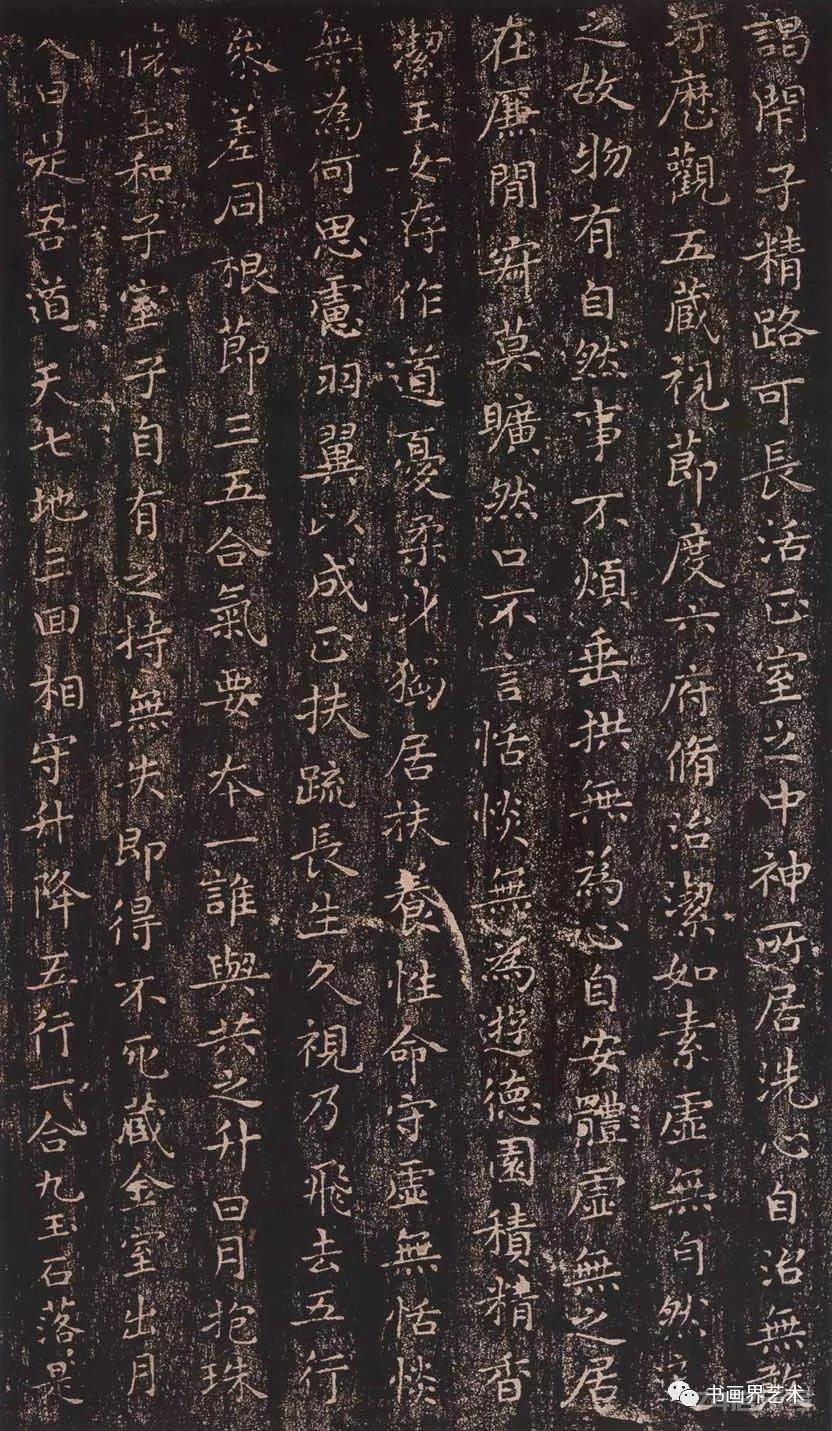 謁閇子精路可長活正室之中神所居洗心自治無
汙歷觀五藏視節度六府脩治潔如素虛無自然
之故物有自然事不煩垂拱無為心自安體虛無之居
在廉閒寂莫曠然口不言恬惔無為遊德園積精香
潔玉女存作道憂柔身獨居扶養性命守虛無恬惔
無為何思慮羽翼以成正扶疏長生久視乃飛去五行
參差同根節三五合氣要本一誰與共之升日月抱珠
懷玉和子室子自有之持無失即得不死藏金室出月
入日是吾道天七地三回相守升降五行一合九玉石落〻是
书画界艺术